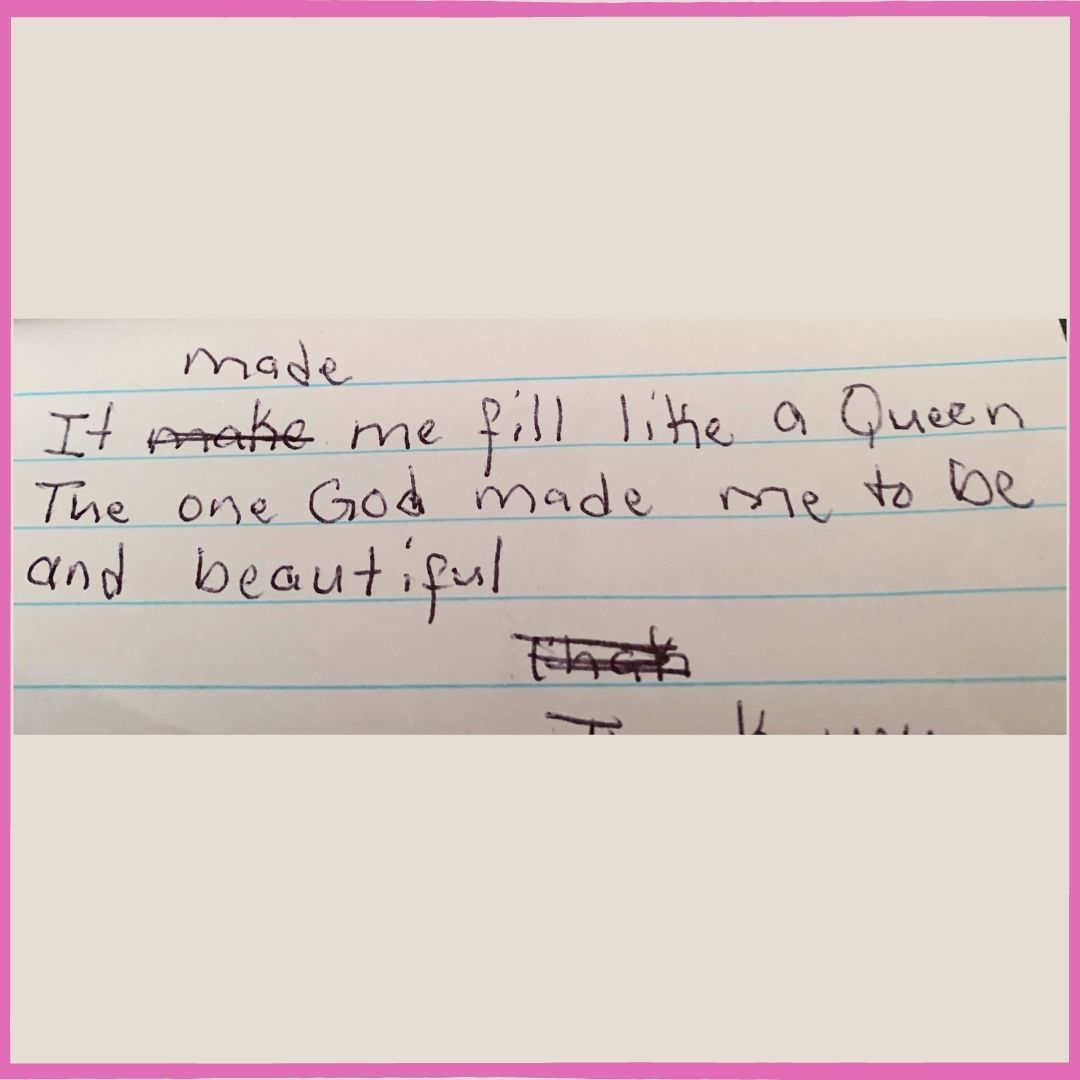 made
It make me fill like a Queen
The one God made me to be
and beautiful